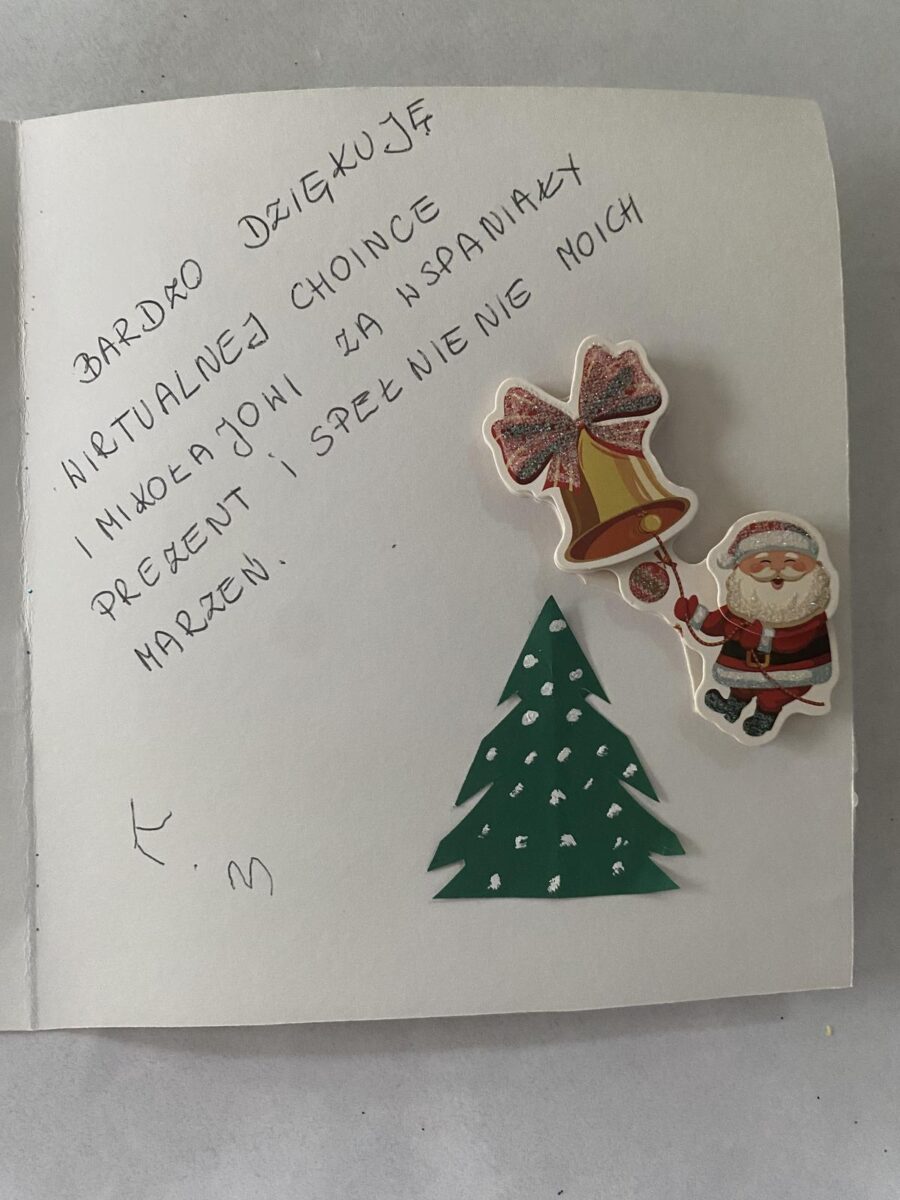 BARDZO DZIĘKUJĘ
WIRTUALNEJ CHOINCE
I MIKOŁAJOWI ZA WSPANIAŁY
PREZENT i SPEŁNIENIE MOICH
MARZEŃ.